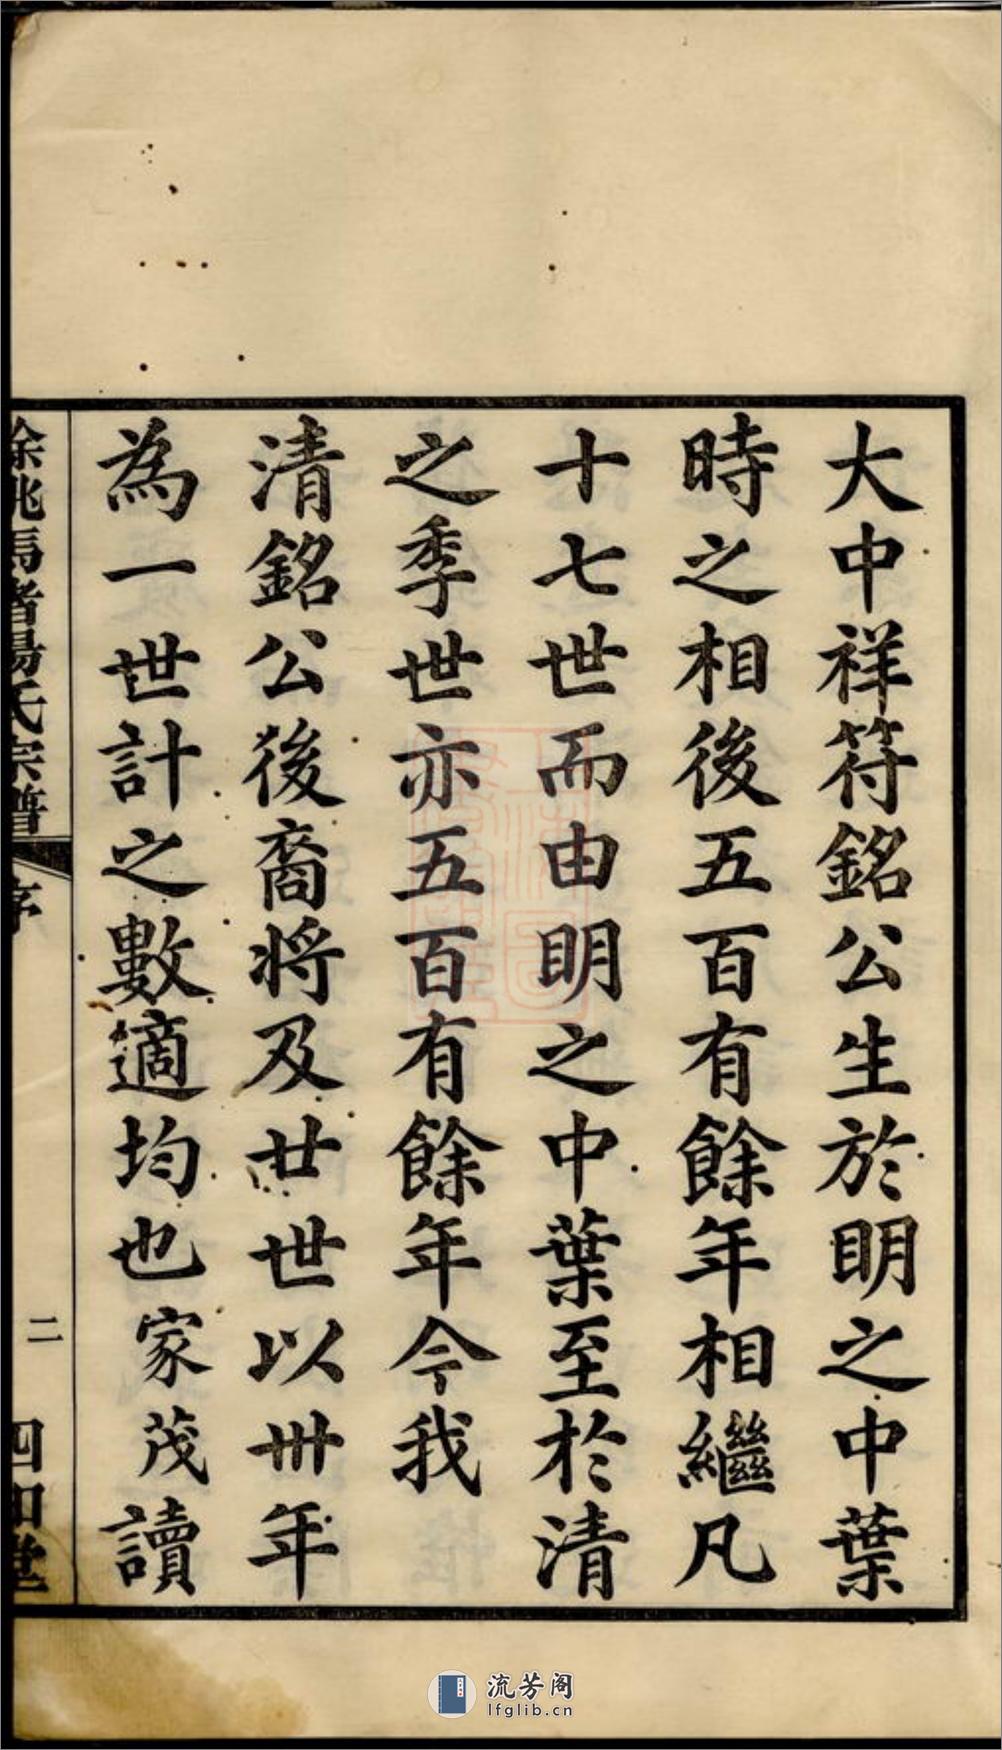 大中祥符銘公生於明之中葉
時之相後五百有餘年相繼凡
十七世而由明之中葉至於清
之季世亦五百有餘年今我
清銘公後裔將及廿世以卅年
為一世計之數適均也家茂讀
餘姚馬者楊氏宗譜
序
二
四知堂
流芳阁
lfglib.cn